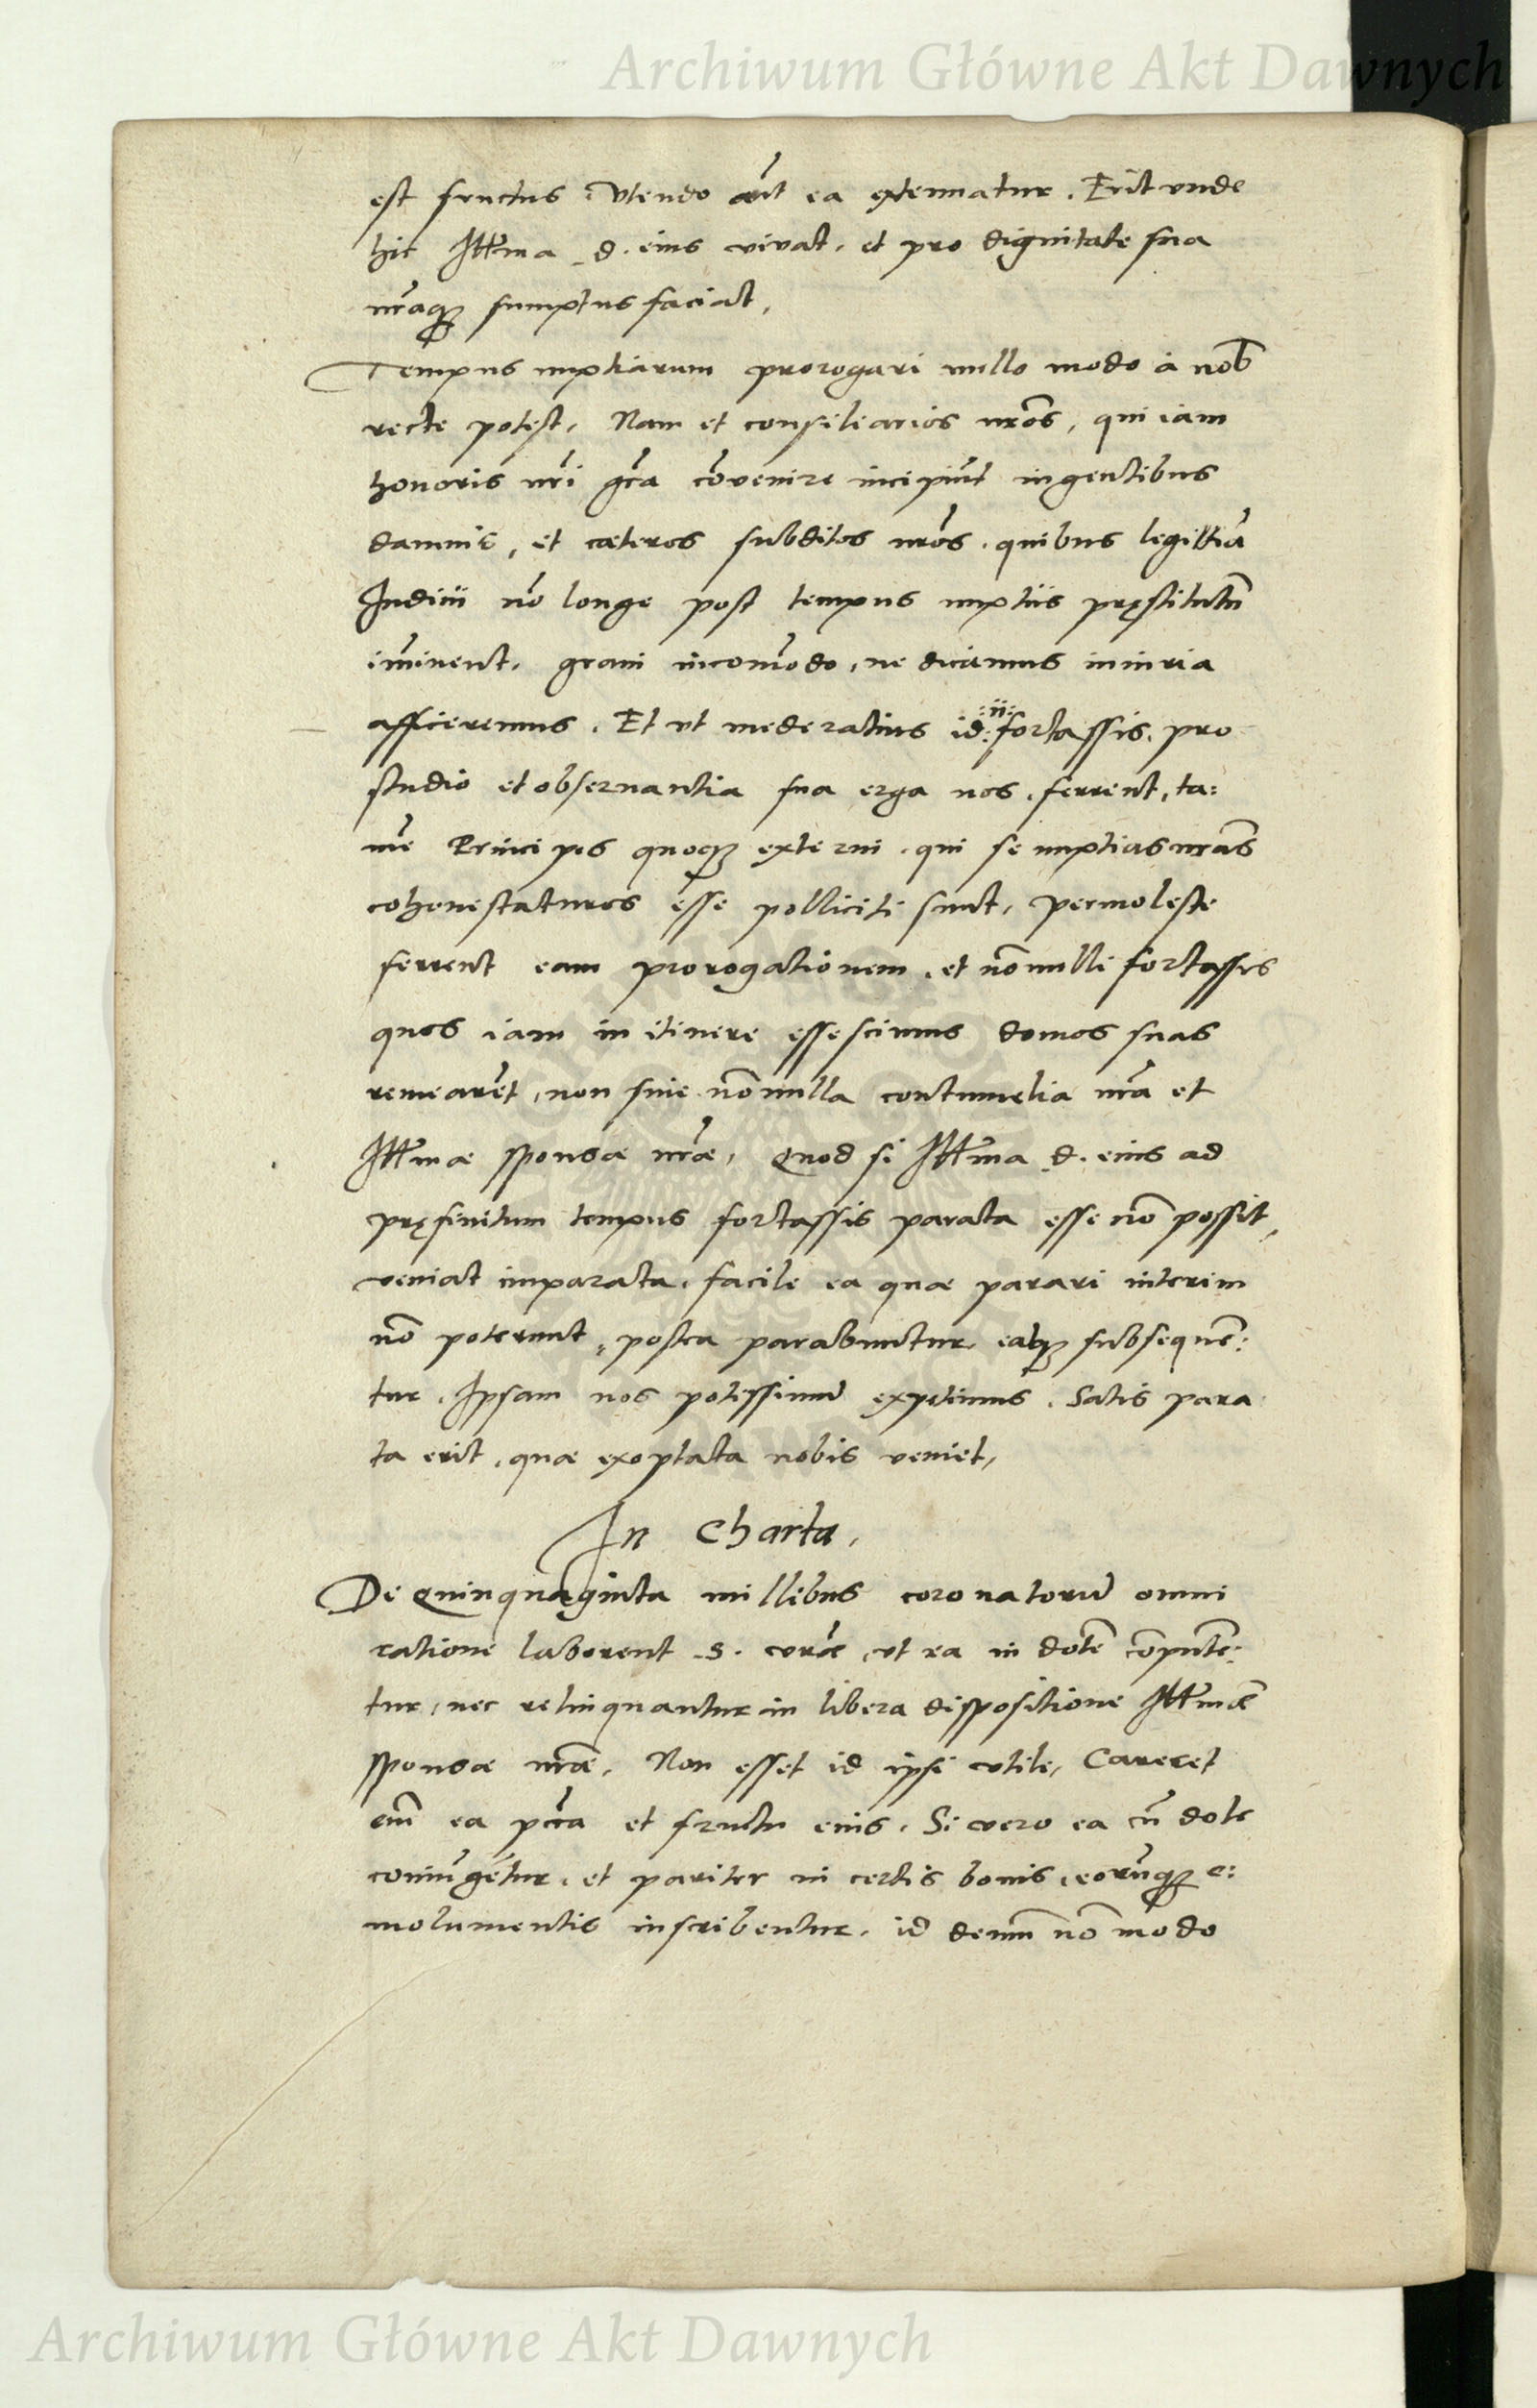 Archiwum Główne Akt Dawnych
est fructus. Vtendo aūt ea extenuatur. Erit unde
hic Illma d. eius vivat, et pro dignitate sua
nrāq3 sumptus faciat,
Tempus nuptiarum prorogari nullo modo à nob
recte potest, Nam et consiliarios nrōs, qui iam
honoris nrī grā cōvenire incipiūt ingentibus
damnis, et cæteros subditos nrōs. quibus legittīa
Iudicii nō longe post tempus nuptiis pręstitutū
im̄inent, gravi incom̄odo, ne dicamus iniuria
afficeremus. Et ut moderatius id: :ii: fortassis. pro
studio et observantia sua erga nos, ferrent, ta:
mē Principes quoq3 externi. qui se nuptias nrās
cohonestaturos esse polliciti sunt, permoleste
ferrent eam prorogationem, et nōnulli fortassis
quos iam in itinere esse scimus domos suas
remearēt, non sine nōnulla contumelia nrā et
Illmæ sponsæ nrǣ, Quod si Illma d. eius ad
pręfinitum tempus fortassis parata esse nō possit,
veniat imparata, facile ea quæ parari interim
nō poterunt, postea parabuntur eaq3 subsequē:
tur. Ipsam nos potissimū expetimus. Satis para
ta erit, quæ exoptata nobis veniet,
In Charta,
De Quinquaginta millibus coronatorū omni
ratione laborent S. vrǣ, ut ea in dotē cōputē:
tur, nec relinquantur in libera dispositione Illmæ
sponsæ nrǣ, Non esset id ipsi utile, Careret
enī ea pc̄ia et fructu eius. Si vero ea cū dote
coniūgētur, et pariter in certis bonis, eorūq3 e:
molumentis inscribentur, id demū nō modo
Archiwum Główne Akt Dawnych